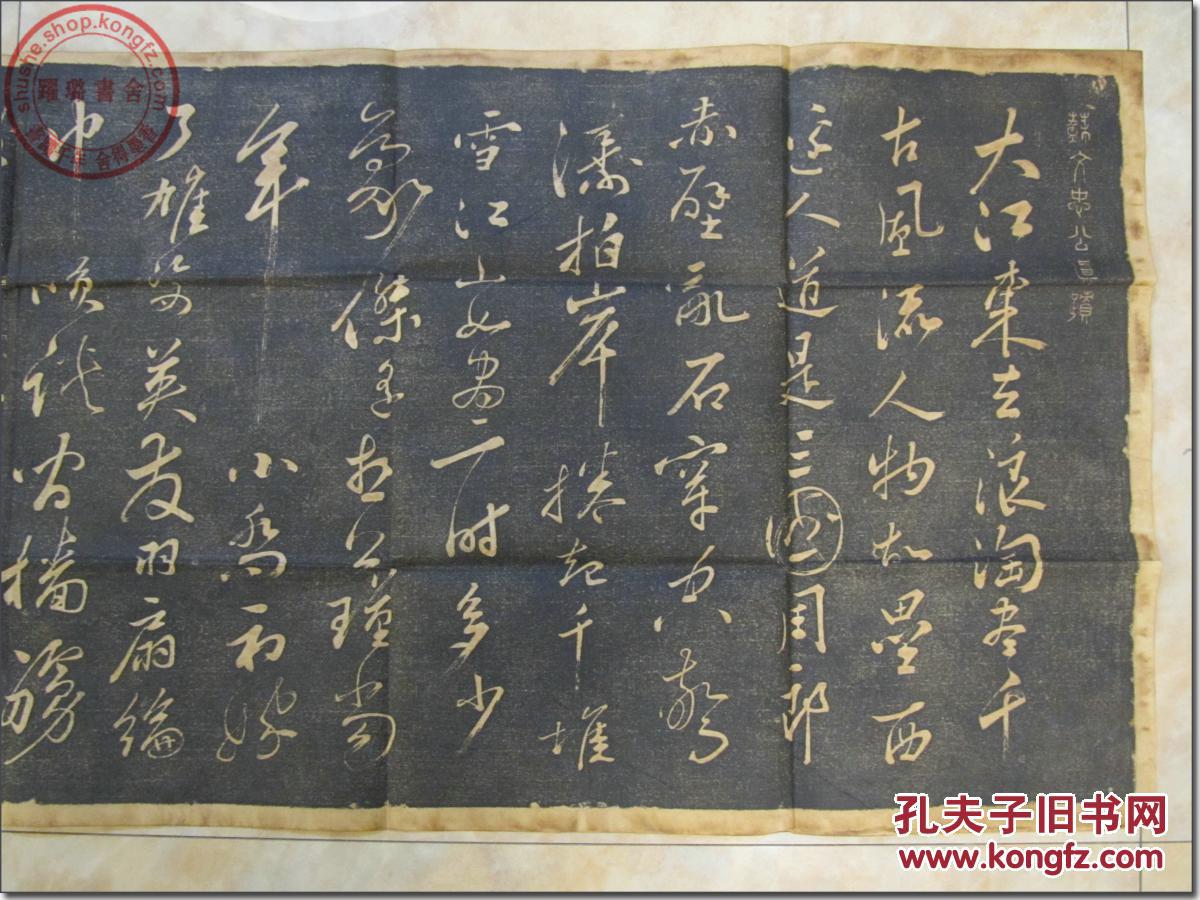 蘇文忠公真蹟
大江東去浪淘盡千
古風流人物故壘西
邊人道是三國周郎
赤壁亂石穿空驚
濤拍岸捲起千堆
雪江山如畫一時多少
豪傑遙想公瑾當
年小喬初嫁
了雄姿英發羽扇綸
巾笑談間檣艣
shushe.shop.kongfz.com
躍璐書舍
孔夫子旧书网
www.kongfz.com